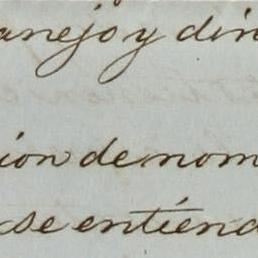 anejo y din
ion de nom
se entiend